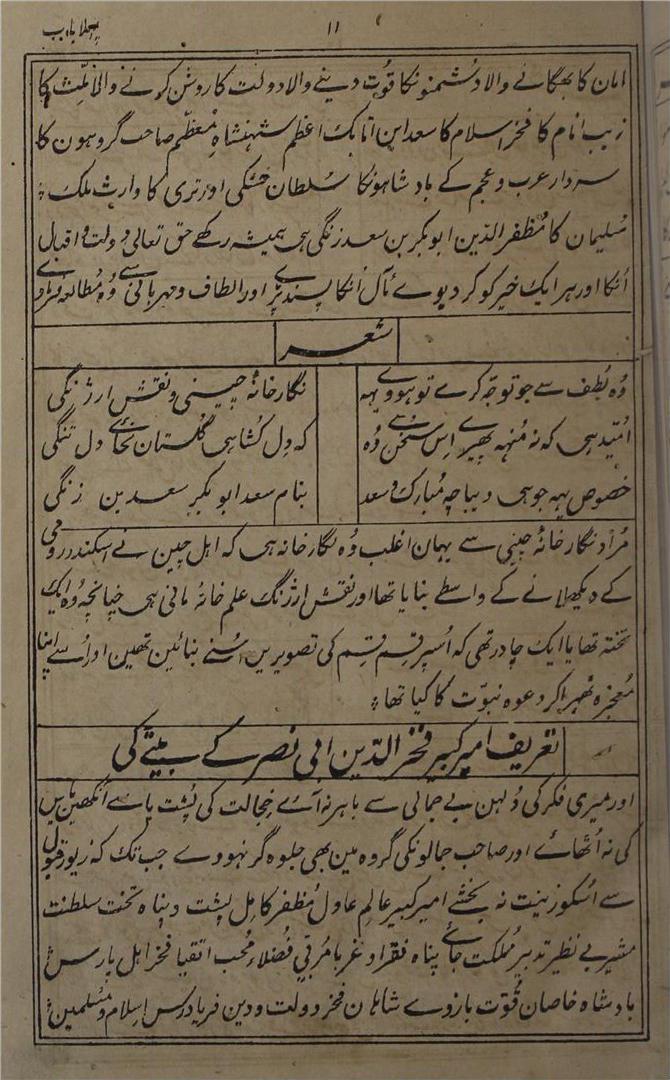 پہلا باب
۱۱
امان کا بھگانے والا دشمنونکا قوت دینے والا دولت کا روشن کرنے والا ملت کا
زیب انام کا فخر اسلام کا سعد ابن اتابک اعظم شہنشاہ معظم صاحب گروہون کا
سردار عرب و عجم کے بادشاہونکا سلطان خشکی اور تری کا وارث ملک
سلیمان کا مظفر الدین ابوبکر بن سعد زنگی ہی ہمیشہ رکھے حق تعالی دولت و اقبال
اُنکا اور ہر ایک خیر کو کر دیوے مآل اُنکا پسند پڑے اور الطاف و مہربانی سے وہ مطالعہ فرماوے
شعر
وُہ لطف سے جو توجہ کرے تو ہووے یہہ
نگارخانۂ چینی و نقش ارژنگی
اُمید ہی کہ نہ مُنہہ پھیرے اِس سخن سے وُہ
کہ دِل کُشا ہی گلستان بجائے دل تنگی
خصوص یہہ جو ہی دیباچہ مُبارک و سعد
بنام سعد ابوبکر سعد بن زنگی
مُراد نگارخانۂ چینی سے یہان اغلب وُہ نگارخانہ ہی کہ اہل چین نے اسکندر رومی
کے دیکھلانے کے واسطے بنایا تھا اور نقش ارژنگ علم خانۂ مانی ہی چنانچہ وُہ ایک
تختہ تھا یا ایک چادر تھی کہ اُسپر قسم قسم کی تصویریں اُسنے بنائین تھین اور اُسے اپنا
مُعجزہ ٹھہرا کر دعوہ نبوّت کا کیا تھا
تعریف امیر کبیر فخر الدّین ابی نصر کے بیٹے کی
اور میری فکر کی دُلہن بے جمالی سے باہر نہ آئے خجالت کی پُشت پا سے آنکھین یاس
کی نہ اُٹھائے اور صاحب جمالونکی گروہ مین بھی جلوہ گر نہووے جب تک کہ زیور قبول
سے اُسکو زینت نہ بخشے امیر کبیر عالم عادل مُظفر کامل پشت و پناہ تخت سلطنت
مشیر بے نظیر تدبیر مُملکت جائے پناہ فقرا و غربا مُربّی فُضلاء مُحب اتقیا فخر اہل پارس
بادشاہ خاصان قُوّت بازوے شاہان فخر دولت و دین فریاد رس اسلام و مُسلمین